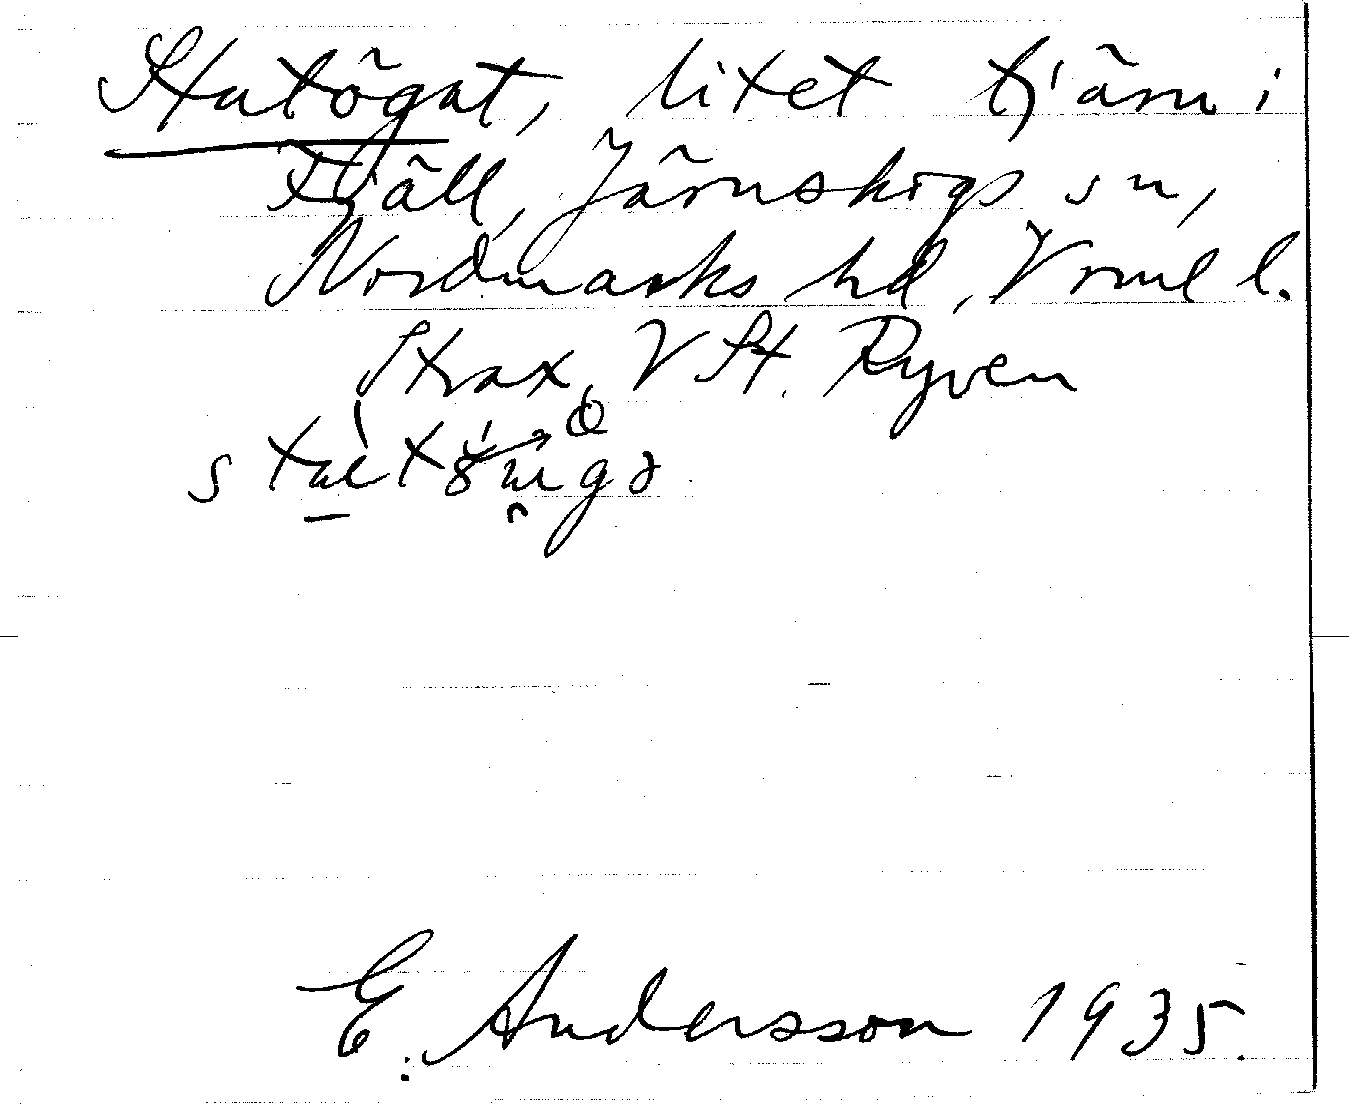 Statögat, litet tjärn i
Fjäll, Järnskogs sn,
Nordmarks hd, Vrml l.
Strax V St. Ryven
E. Andersson 1935.